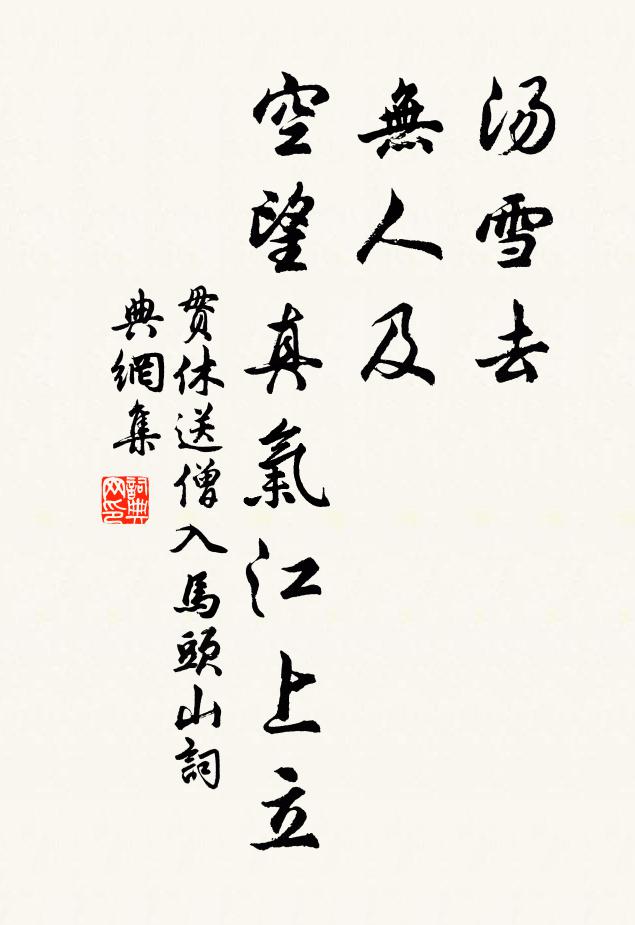 汤雪去
無人及
空望真氣江上立
貫休送僧入馬頭山詞
典網集
詞典
网印